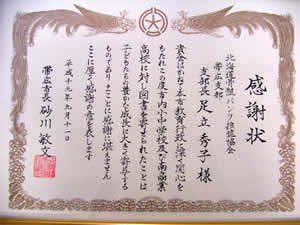 感謝状
北海道骨髄バンク推進協会
帯広支部
支部長 足立秀子様
貴会はかねて本市教育行政に深い関心を
もたれこの度市内小中学校及び南商業
高校に対し図書を寄せられたことは
子どもたちの豊かな成長に大きく寄与する
ものでありまことに感謝に堪えません
ここに厚く感謝の意を表します
平成十九年九月十一日
帯広市長 砂川敏文